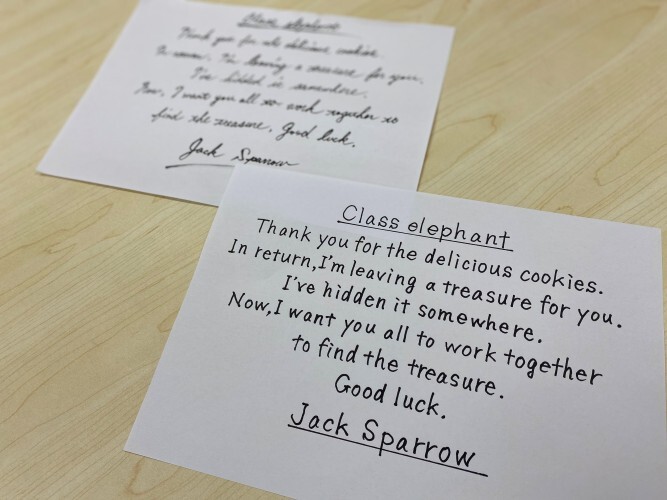 Class elephant
Thank you for the delicious cookies.
In return, I'm leaving a treasure for you.
I've hidden it somewhere.
Now, I want you all to work together to
find the treasure. Good luck.
Jack Sparrow
Class elephant
Thank you for the delicious cookies.
In return, I'm leaving a treasure for you.
I've hidden it somewhere.
Now, I want you all to work together
to find the treasure.
Good luck.
Jack Sparrow